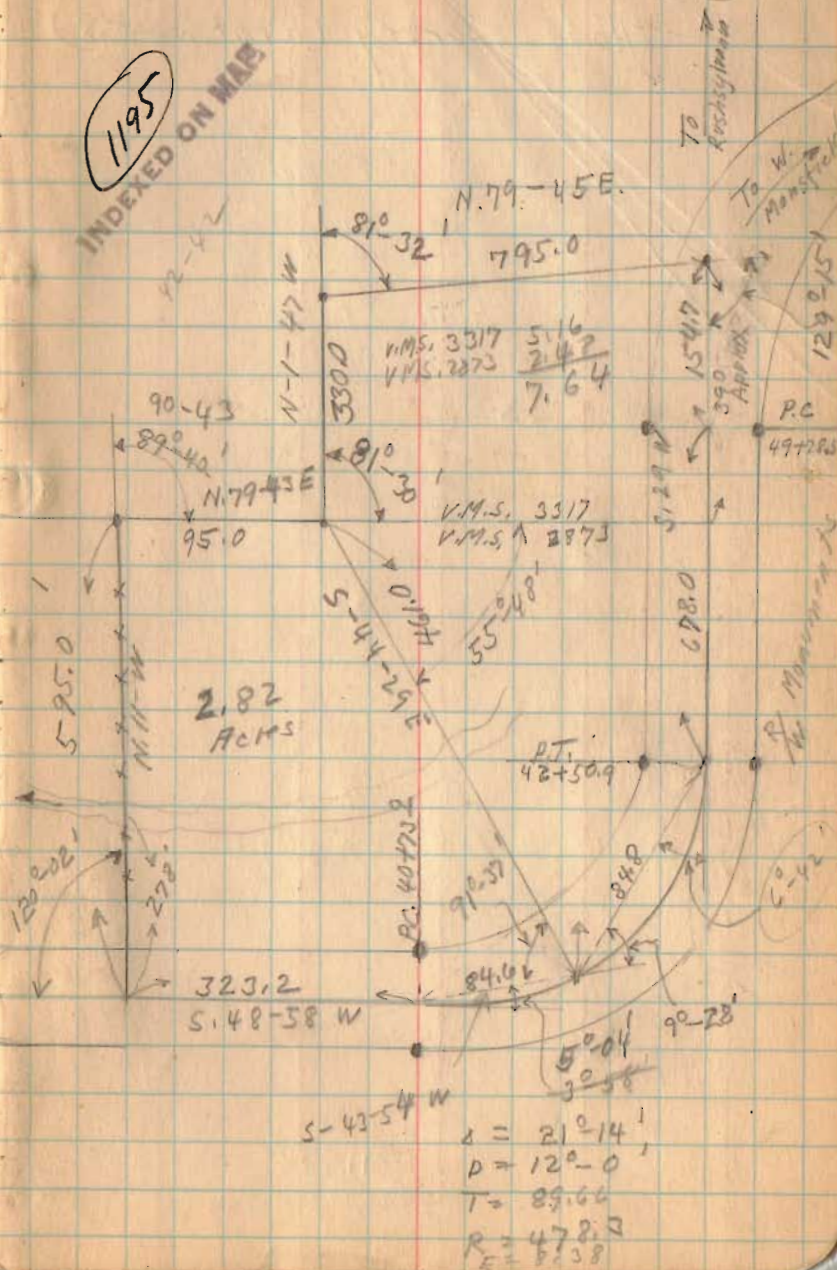 1195
INDEXED ON MAP
42-42
To
Rushsylvania
To W.
Mansfield
N. 79-45 E.
81°-32'
795.0
N-1-47 W
330.0
V.M.S. 3317 5.16
V.M.S. 2873 2.48
7.64
154.7
390
Approx
129°-15'
P.C
49+28.5
90-43
89°-40'
N. 79-43 E
95.0
81°-30'
V.M.S. 3317
V.M.S. 2873
S. 29 W
678.0
595.0
N. 11-W
461.0
S-44-29 E
55°-48'
2.82
Acres
P.T.
42+50.9
R/W Monument
120°-02'
278'
P.C. 40+73.9
91°-37'
84.8
6°-42'
323.2
S. 48-58 W
84.6
9°-28'
5°-04'
3°-58'
S-43-54 W
Δ = 21°-14'
D = 12°-0'
T = 89.66
R = 478.3
E = 8.38